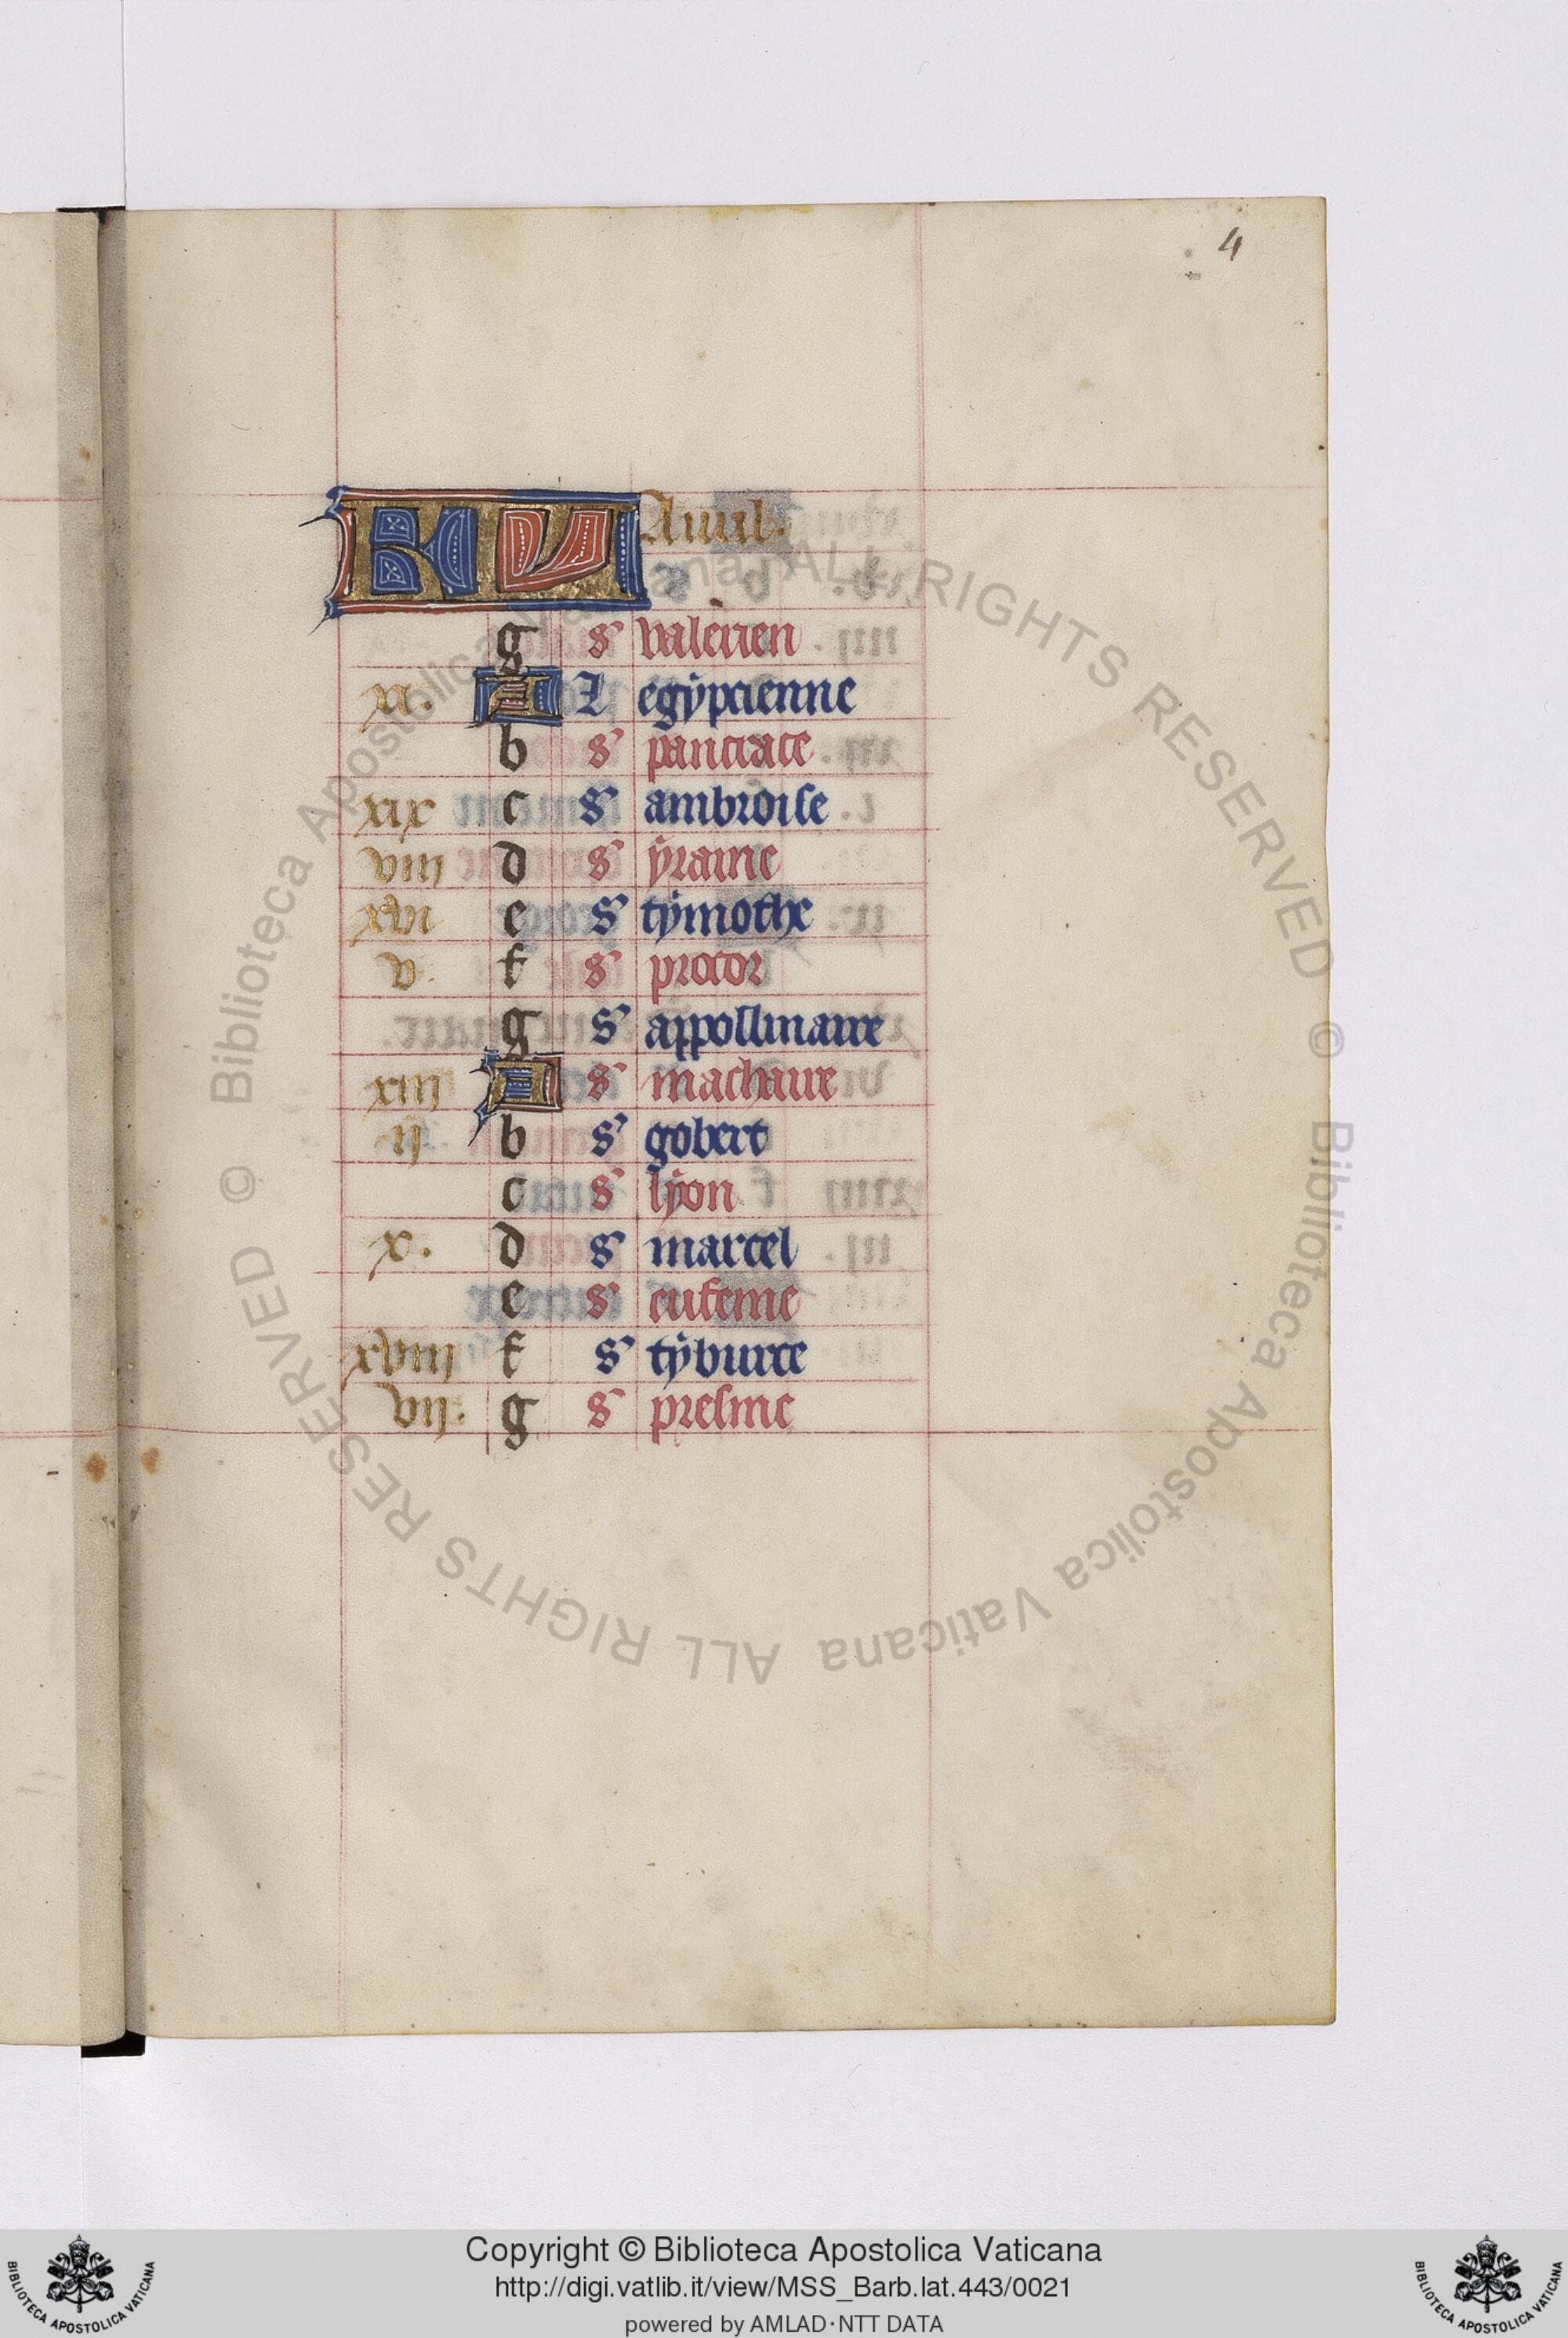 4
KL Auril.
g s' valerien
xi. A L egypcienne
b s' pancrace
xix c s' ambroise
viii d s' yraine
xvi e s' tymothe
v. f s' proror
g s' appollinaire
xiii A s' machaire
ii b s' gobert
c s' lyon
x. d s' marcel
e s' eufeme
xviii f s' tyburce
vii. g s' presme
© Biblioteca Apostolica Vaticana ALL RIGHTS RESERVED
© Biblioteca Apostolica Vaticana ALL RIGHTS RESERVED
Copyright © Biblioteca Apostolica Vaticana
http://digi.vatlib.it/view/MSS_Barb.lat.443/0021
powered by AMLAD·NTT DATA
BIBLIOTECA APOSTOLICA VATICANA
BIBLIOTECA APOSTOLICA VATICANA